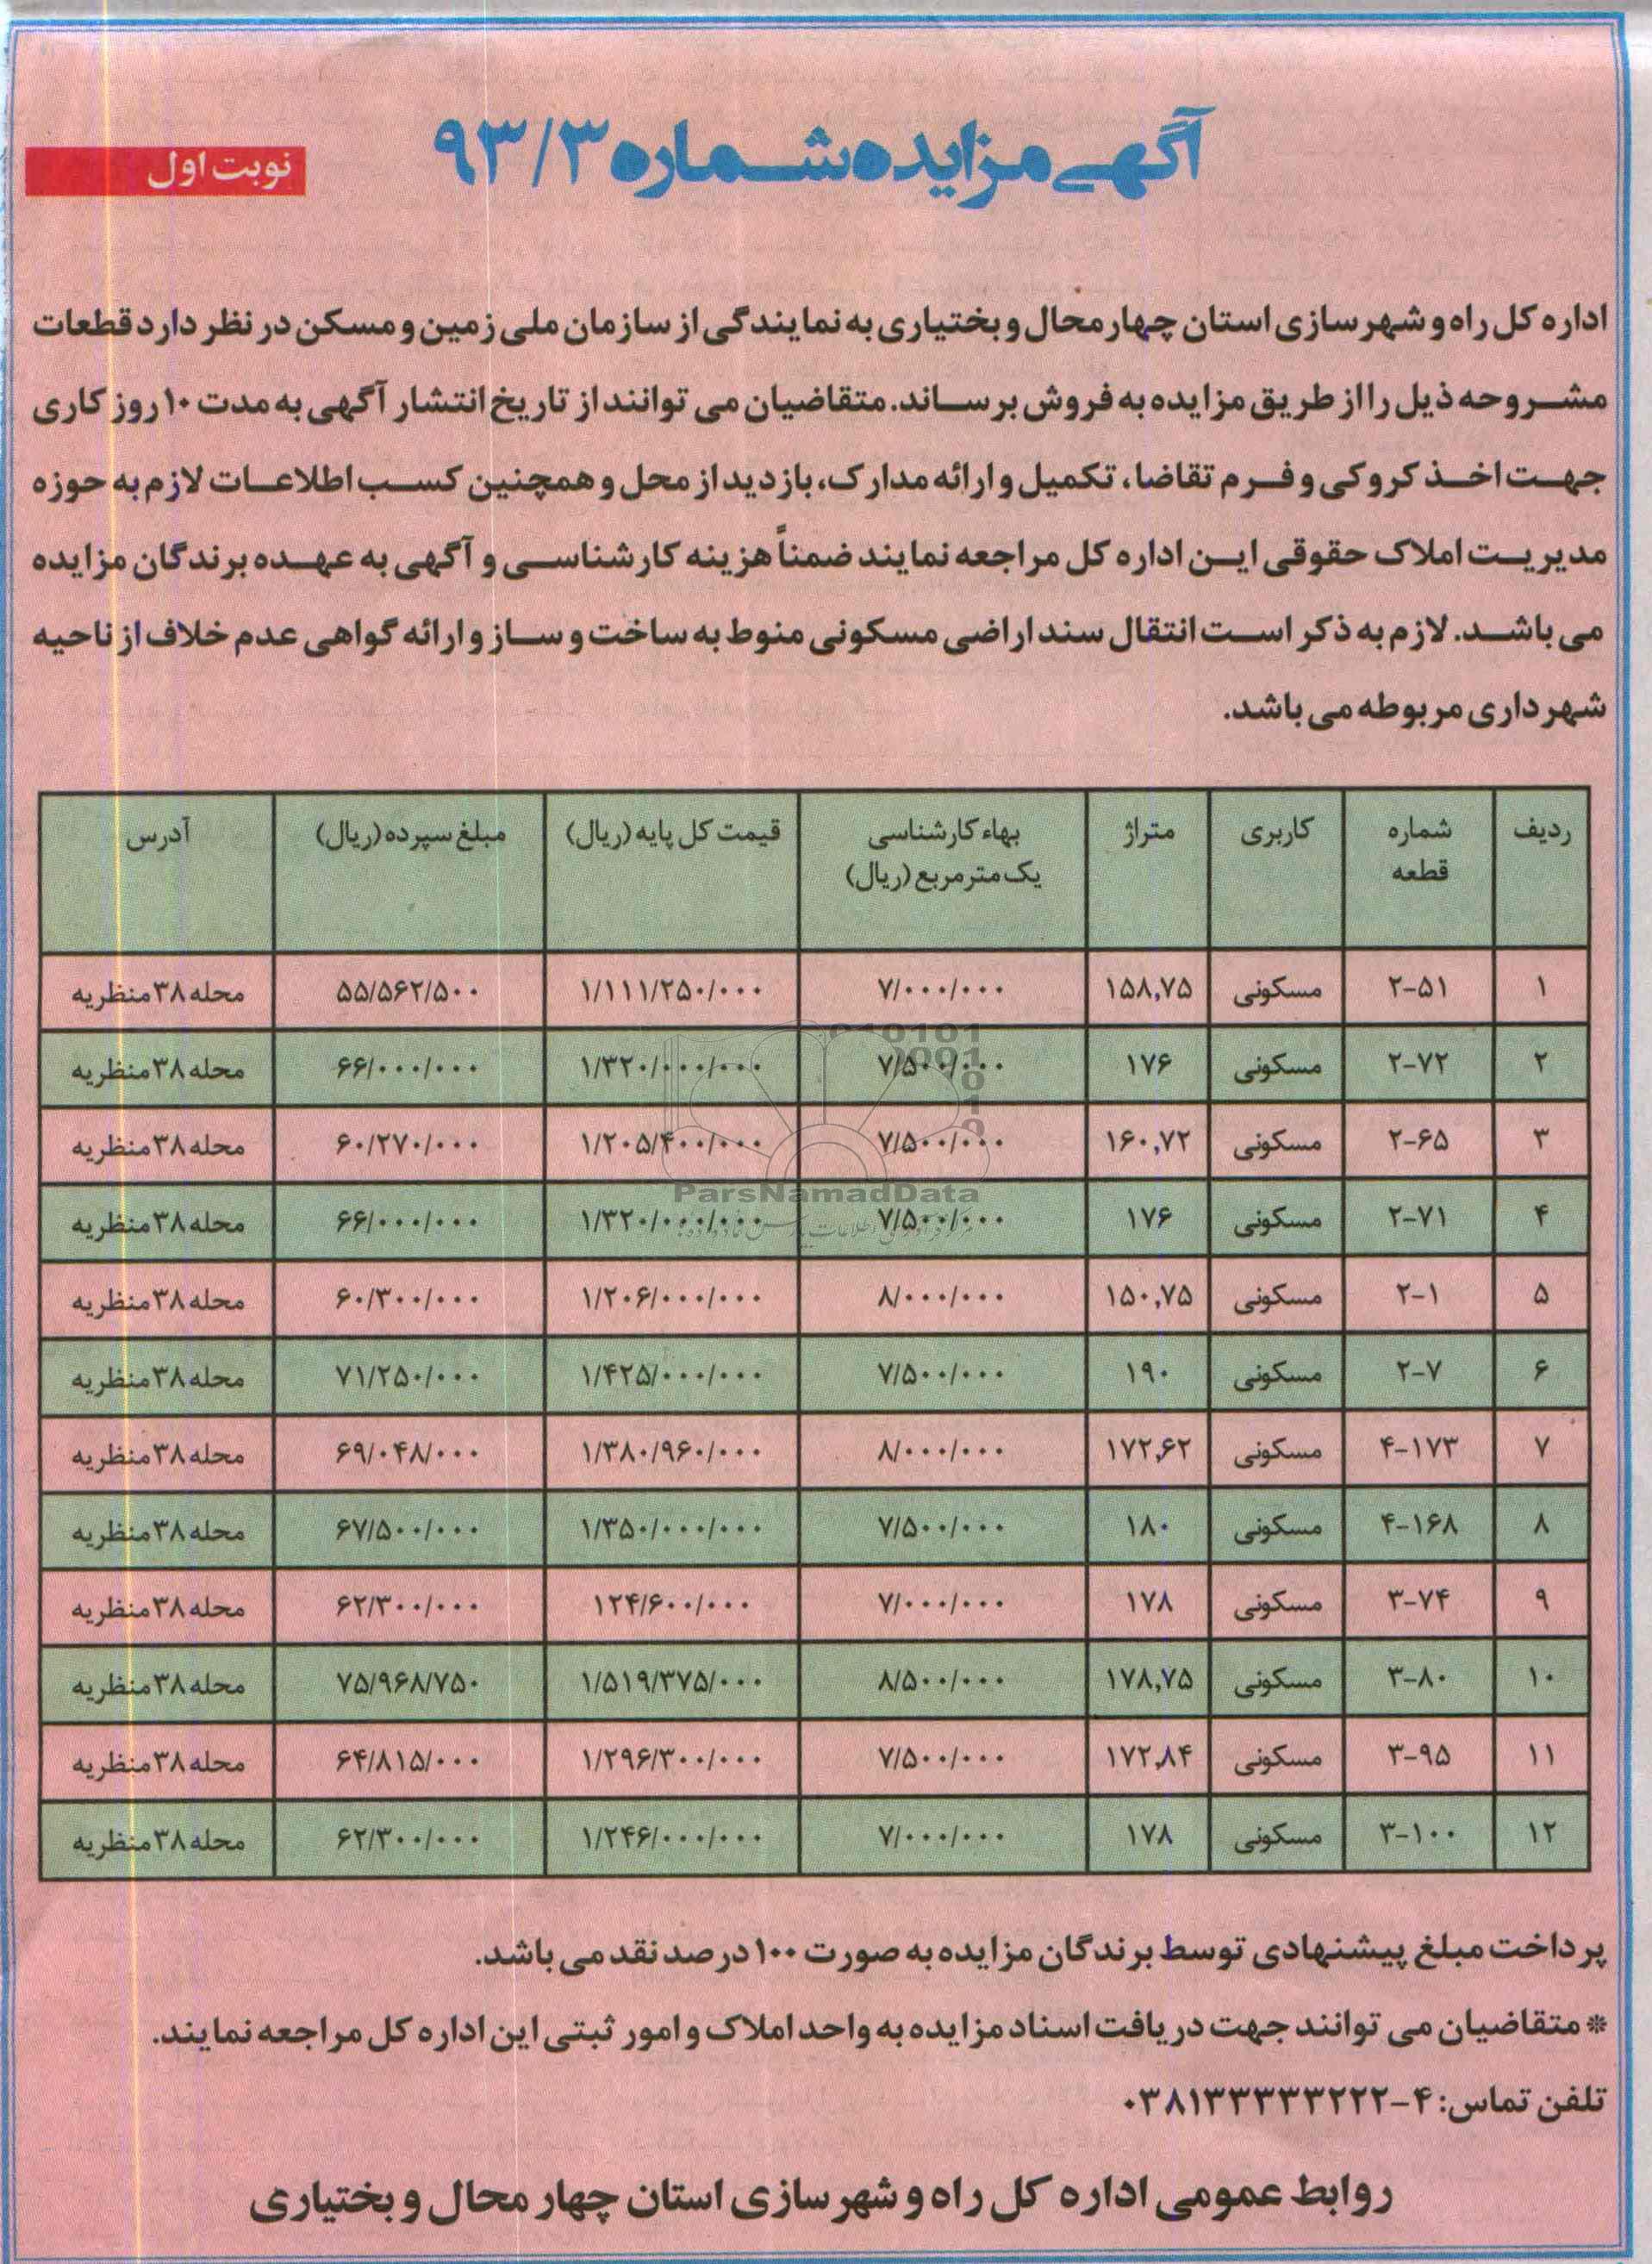 آگهی مزایده شماره ۹۳/۳
نوبت اول
اداره کل راه و شهرسازی استان چهارمحال و بختیاری به نمایندگی از سازمان ملی زمین و مسکن در نظر دارد قطعات
مشروحه ذیل را از طریق مزایده به فروش برساند. متقاضیان می توانند از تاریخ انتشار آگهی به مدت ۱۰ روز کاری
جهت اخذ کروکی و فرم تقاضا، تکمیل و ارائه مدارک، بازدید از محل و همچنین کسب اطلاعات لازم به حوزه
مدیریت املاک حقوقی این اداره کل مراجعه نمایند ضمناً هزینه کارشناسی و آگهی به عهده برندگان مزایده
می باشد. لازم به ذکر است انتقال سند اراضی مسکونی منوط به ساخت و ساز و ارائه گواهی عدم خلاف از ناحیه
شهرداری مربوطه می باشد.
ردیف شماره قطعه کاربری متراژ بهاء کارشناسی یک متر مربع (ریال) قیمت کل پایه (ریال) مبلغ سپرده (ریال) آدرس
۱ ۲-۵۱ مسکونی ۱۵۸,۷۵ ۷/۰۰۰/۰۰۰ ۱/۱۱۱/۲۵۰/۰۰۰ ۵۵/۵۶۲/۵۰۰ محله ۳۸ منظریه
۲ ۲-۷۲ مسکونی ۱۷۶ ۷/۵۰۰/۰۰۰ ۱/۳۲۰/۰۰۰/۰۰۰ ۶۶/۰۰۰/۰۰۰ محله ۳۸ منظریه
۳ ۲-۶۵ مسکونی ۱۶۰,۷۲ ۷/۵۰۰/۰۰۰ ۱/۲۰۵/۴۰۰/۰۰۰ ۶۰/۲۷۰/۰۰۰ محله ۳۸ منظریه
۴ ۲-۷۱ مسکونی ۱۷۶ ۷/۵۰۰/۰۰۰ ۱/۳۲۰/۰۰۰/۰۰۰ ۶۶/۰۰۰/۰۰۰ محله ۳۸ منظریه
۵ ۲-۱ مسکونی ۱۵۰,۷۵ ۸/۰۰۰/۰۰۰ ۱/۲۰۶/۰۰۰/۰۰۰ ۶۰/۳۰۰/۰۰۰ محله ۳۸ منظریه
۶ ۲-۷ مسکونی ۱۹۰ ۷/۵۰۰/۰۰۰ ۱/۴۲۵/۰۰۰/۰۰۰ ۷۱/۲۵۰/۰۰۰ محله ۳۸ منظریه
۷ ۴-۱۷۳ مسکونی ۱۷۲,۶۲ ۸/۰۰۰/۰۰۰ ۱/۳۸۰/۹۶۰/۰۰۰ ۶۹/۰۴۸/۰۰۰ محله ۳۸ منظریه
۸ ۴-۱۶۸ مسکونی ۱۸۰ ۷/۵۰۰/۰۰۰ ۱/۳۵۰/۰۰۰/۰۰۰ ۶۷/۵۰۰/۰۰۰ محله ۳۸ منظریه
۹ ۳-۷۴ مسکونی ۱۷۸ ۷/۰۰۰/۰۰۰ ۱۲۴/۶۰۰/۰۰۰ ۶۲/۳۰۰/۰۰۰ محله ۳۸ منظریه
۱۰ ۳-۸۰ مسکونی ۱۷۸,۷۵ ۸/۵۰۰/۰۰۰ ۱/۵۱۹/۳۷۵/۰۰۰ ۷۵/۹۶۸/۷۵۰ محله ۳۸ منظریه
۱۱ ۳-۹۵ مسکونی ۱۷۲,۸۴ ۷/۵۰۰/۰۰۰ ۱/۲۹۶/۳۰۰/۰۰۰ ۶۴/۸۱۵/۰۰۰ محله ۳۸ منظریه
۱۲ ۳-۱۰۰ مسکونی ۱۷۸ ۷/۰۰۰/۰۰۰ ۱/۲۴۶/۰۰۰/۰۰۰ ۶۲/۳۰۰/۰۰۰ محله ۳۸ منظریه
ParsNamadData
پرداخت مبلغ پیشنهادی توسط برندگان مزایده به صورت ۱۰۰ درصد نقد می باشد.
* متقاضیان می توانند جهت دریافت اسناد مزایده به واحد املاک و امور ثبتی این اداره کل مراجعه نمایند.
تلفن تماس: ۴-۰۳۸۱۳۳۳۳۳۲۲۲
روابط عمومی اداره کل راه و شهرسازی استان چهار محال و بختیاری